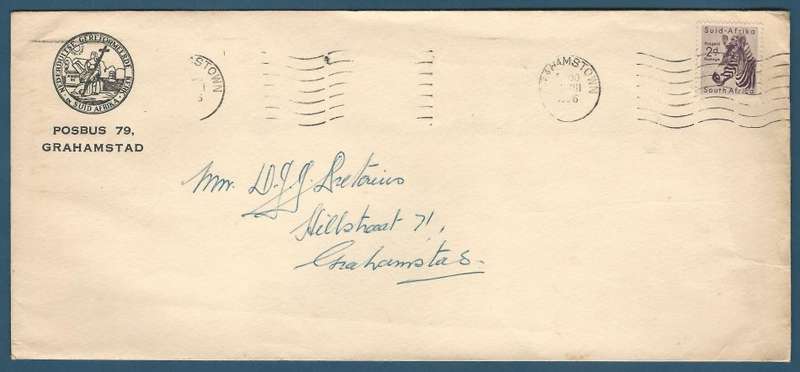 NEDERDUITSE GEREFORMEERDE KERK
SUID AFRIKA
POSBUS 79,
GRAHAMSTAD
STOWN
HAMSTOWN
Suid-Afrika
Posgeld
2d
Postage
South Africa
Mnr. D.J.J. Bretorius
Hillstraat 71,
Grahamstad.